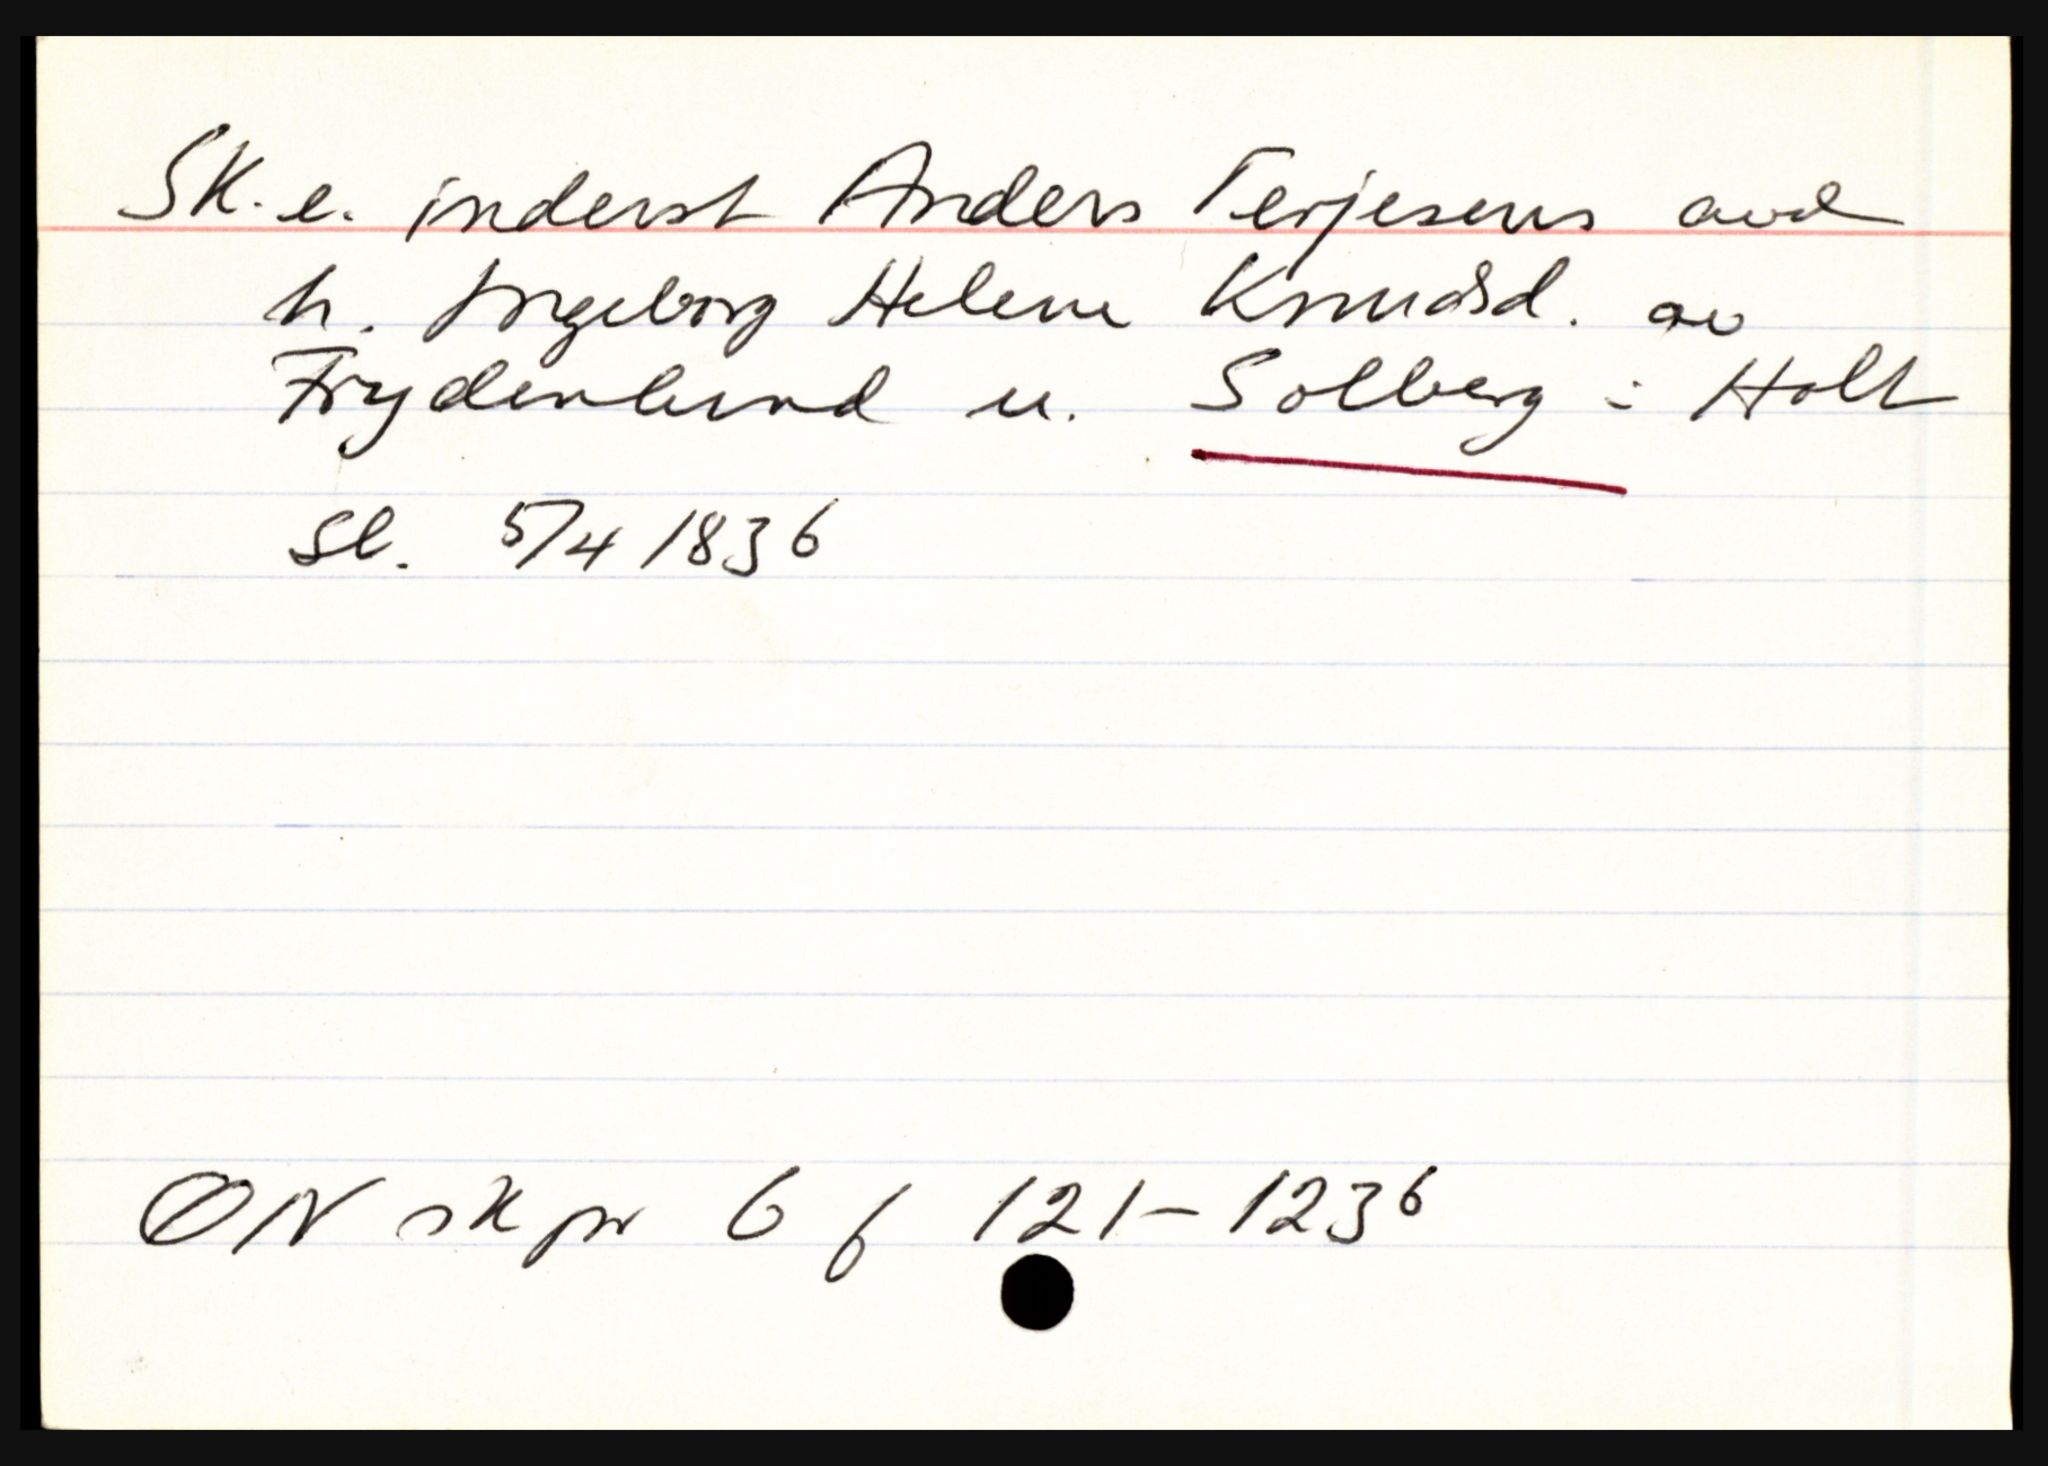 Sk. e. inderst Anders Terjesens avd
h. Ingeborg Helene Knudsd. av
Frydenlund u. Solberg i Holt
sl. 5/4 1836
ØN sk pr 6 f 121-123⁶